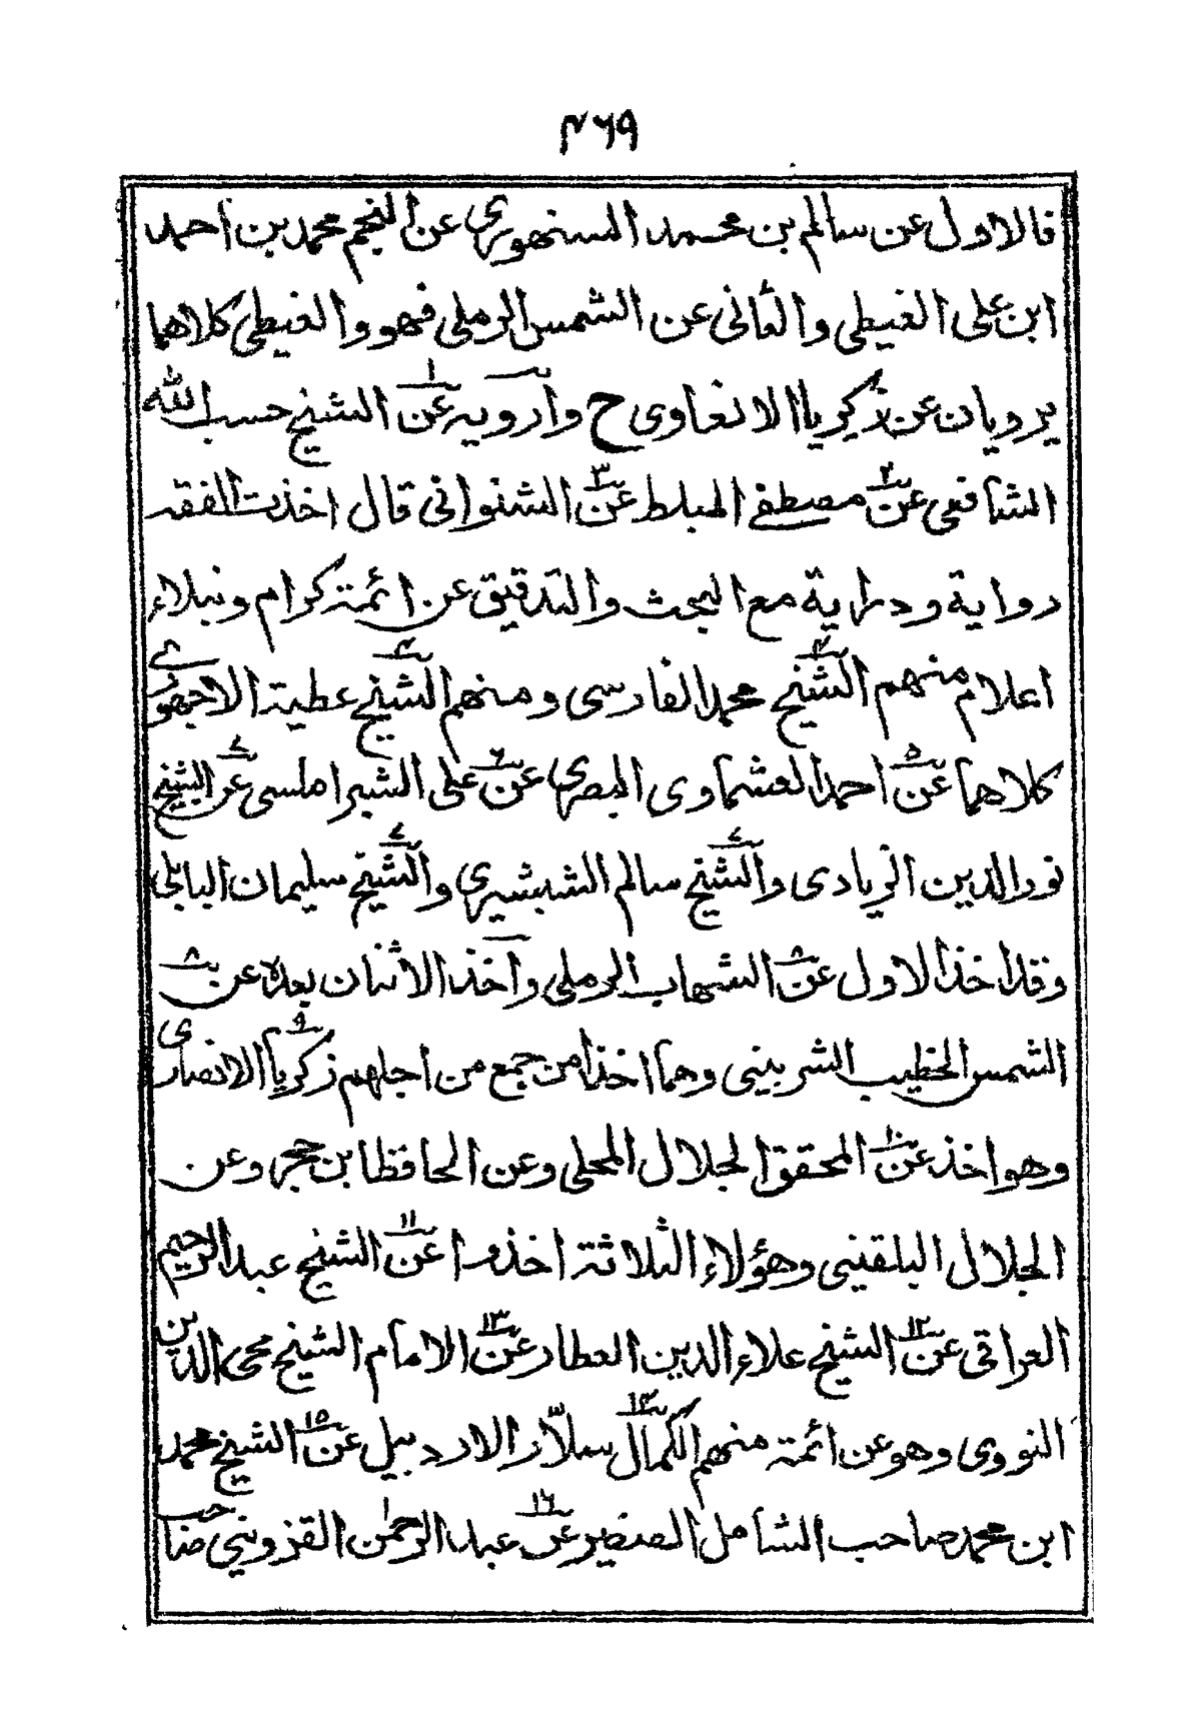 ٤٦٩
فالاول عن سالم بن محمد السنهوري عن النجم محمد بن احمد
ابن على الغيطي والثاني عن الشمس الرملي فهو والغيطي كلاهما
يرويان عن زكريا الانصاوى ح وأرويه عن ١ الشيخ حسب الله
الشافعى عن ٢ مصطفى المبلط عن ٣ الشنوانى قال اخذت الفقه
رواية ودراية مع البحث والتدقيق عن ائمة كرام ونبلاء
اعلام منهم الشيخ ٤ محمد الفارسى ومنهم الشيخ ٤ عطية الاجهورى
كلاهما عن ٥ احمد العشماوى المصرى عن ٦ على الشبراملسى عن ٧ الشيخ
نور الدين الزيادى والشيخ ٧ سالم الشبشيرى والشيخ ٧ سليمان البابلى
وقد اخذ الاول عن ٨ الشهاب الرملى وأخذ الاثنان بعده عن ٨
الشمس الخطيب الشربينى وهما اخذا من جمع من اجلهم زكريا ٩ الانصارى
وهو اخذ عن ١٠ المحقق الجلال المحلى وعن الحافظ ابن حجر وعن
الجلال البلقينى وهؤلاء الثلاثة اخذوا عن ١١ الشيخ عبد الرحيم
العراقى عن ١٢ الشيخ علاء الدين العطار عن ١٣ الامام الشيخ محى الدين
النووى وهو عن ائمة منهم الكمال ١٤ سلّار الاردبيل عن ١٥ الشيخ محمد
ابن محمد صاحب الشامل الصغير عن ١٦ عبد الرحمن القزوينى صاحب